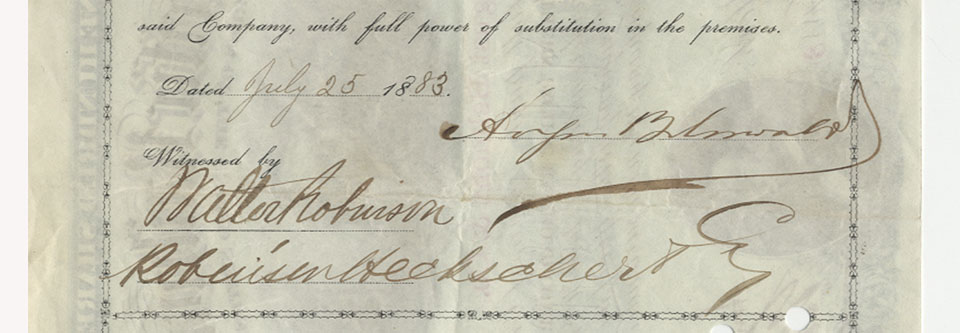 said Company, with full power of substitution in the premises.
Dated July 25 1883.
Witnessed by
Walter Robinson
Robinson Heckscher & Cy